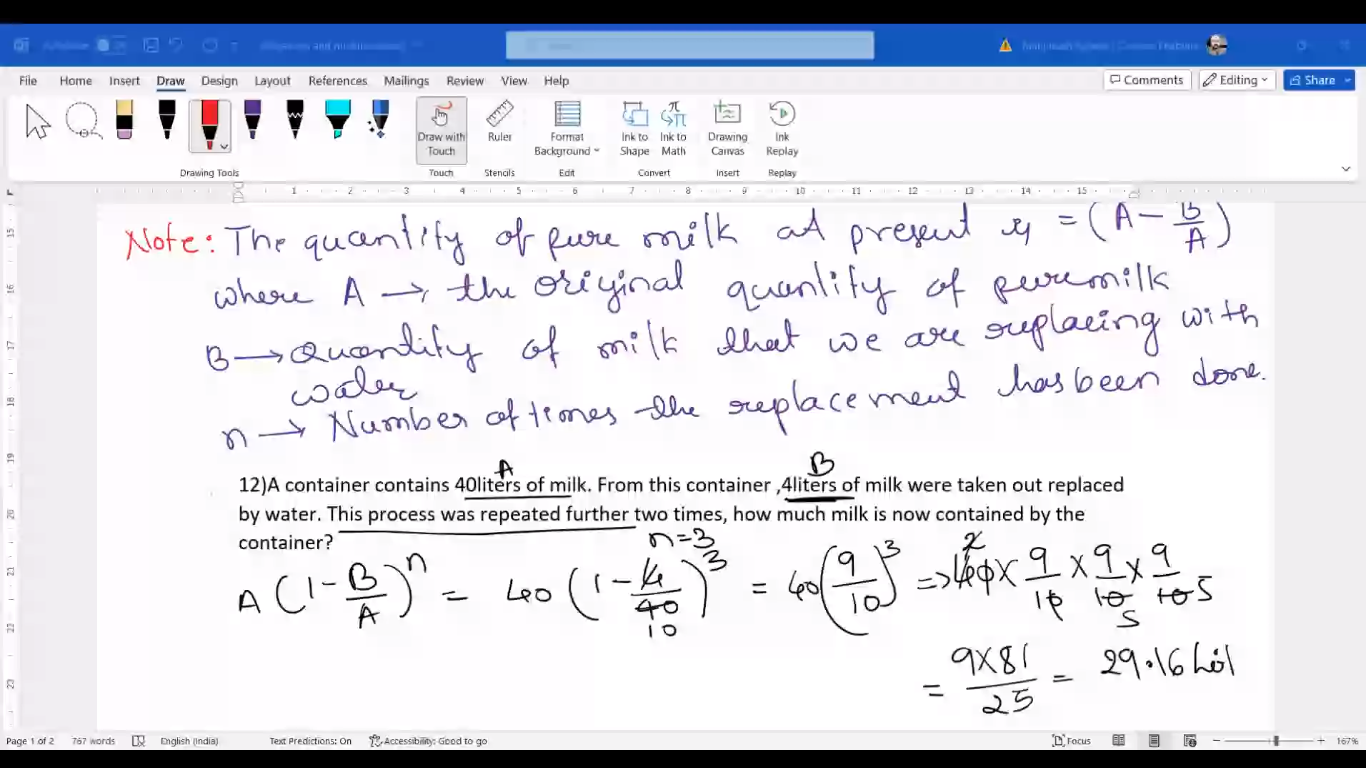 File Home Insert Draw Design Layout References Mailings Review View Help Comments Editing Share
Draw with Touch Ruler Format Background Ink to Shape Ink to Math Drawing Canvas Ink Replay
Drawing Tools Touch Stencils Edit Convert Insert Replay
1 2 3 4 5 6 7 8 9 10 11 12 13 14 15
Note: The quantity of pure milk at present is = (A - B/A)
where A → the original quantity of pure milk
B → Quantity of milk that we are replacing with
water
n → Number of times the replacement has been done.
A B
12)A container contains 40liters of milk. From this container ,4liters of milk were taken out replaced
by water. This process was repeated further two times, how much milk is now contained by the
container?
n=3
A(1 - B/A)^n = 40(1 - 4/40)^3 = 40(9/10)^3 => 40 × 9/10 × 9/10 × 9/10
10 2 5 5
= 9×81/25 = 29.16
Page 1 of 2 767 words English (India) Text Predictions: On Accessibility: Good to go Focus 167%